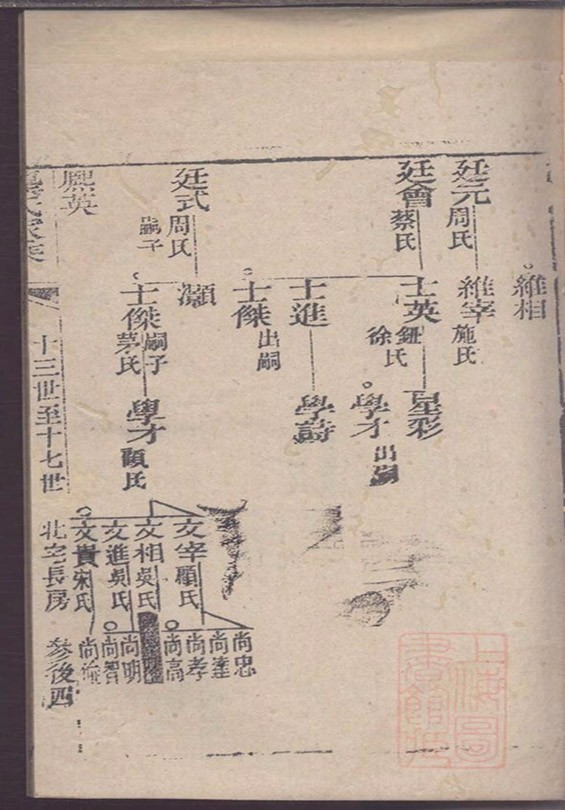 維相
廷元 周氏
維宰 施氏
廷會 蔡氏
士英 鈕氏 徐氏
星彩
學才 出嗣
士進
學詩
士傑 出嗣
廷式 周氏
嗣子
灝
士傑 嗣子 茅氏
學才 顧氏
文宰 顧氏
文相 吳氏
文進 吳氏
文貴 宋氏
尚忠
尚達
尚孝
尚高
尚明
尚智
尚倫
熙英
十三世至十七世
北宅長房
參後四
上海圖書館藏